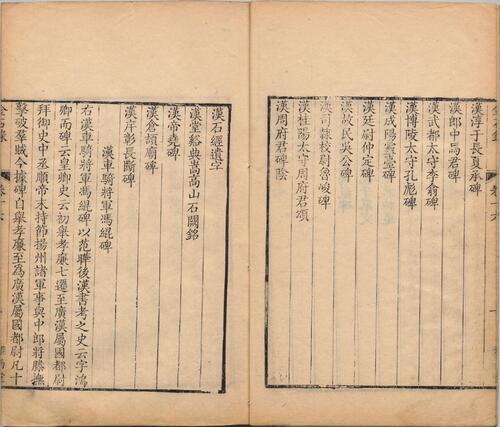 漢淳于長夏承碑
漢郎中馬君碑
漢武都太守李翕碑
漢博陵太守孔彪碑
漢成陽靈臺碑
漢廷尉仲定碑
漢故民吳公碑
漢司隸校尉魯峻碑
漢桂陽太守周府君頌
漢周府君碑陰
漢石經遺字
漢堂谿典嵩高山石闕銘
漢帝堯碑
漢倉頡廟碑
漢庠彰長斷碑
漢車騎將軍馮緄碑
右漢車騎將軍馮緄碑以范曄後漢書考之史云字鴻
卿而碑云皇卿史云初舉孝廉七遷至廣漢屬國都尉
拜御史中丞順帝末持節揚州諸軍事與中郎將滕撫
擊破羣賊今據碑自舉孝廉至為廣漢屬國都尉凡十